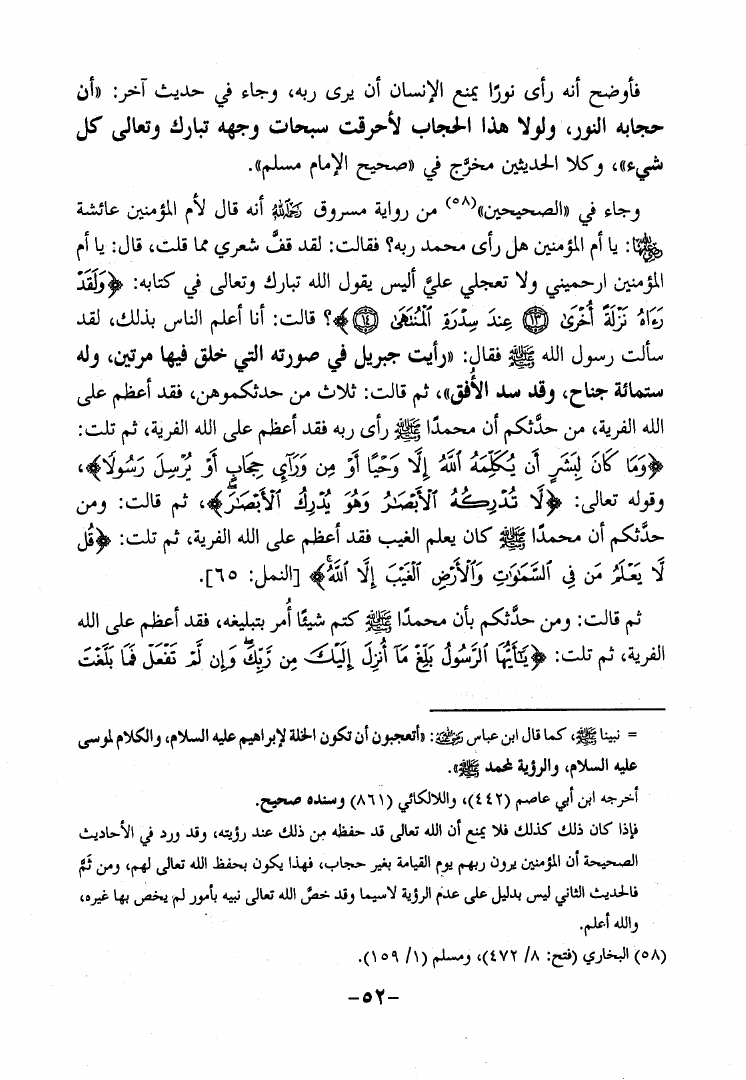 فأوضح أنه رأى نورًا يمنع الإنسان أن يرى ربه، وجاء في حديث آخر: «أن
حجابه النور، ولولا هذا الحجاب لأحرقت سبحات وجهه تبارك وتعالى كل
شيء»، وكلا الحديثين مخرَّج في «صحيح الإمام مسلم».
وجاء في «الصحيحين»(٥٨) من رواية مسروق رحمه الله أنه قال لأم المؤمنين عائشة
رضي الله عنها: يا أم المؤمنين هل رأى محمد ربه؟ فقالت: لقد قفَّ شعري مما قلت، قال: يا أم
المؤمنين ارحميني ولا تعجلي عليَّ أليس يقول الله تبارك وتعالى في كتابه: ﴿وَلَقَدْ
رَءَاهُ نَزْلَةً أُخْرَىٰ ﴿١٣﴾ عِندَ سِدْرَةِ ٱلْمُنتَهَىٰ ﴿١٤﴾﴾؟ قالت: أنا أعلم الناس بذلك، لقد
سألت رسول الله ﷺ فقال: «رأيت جبريل في صورته التي خلق فيها مرتين، وله
ستمائة جناح، وقد سد الأُفق»، ثم قالت: ثلاث من حدثكموهن، فقد أعظم على
الله الفرية، من حدَّثكم أن محمدًا ﷺ رأى ربه فقد أعظم على الله الفرية، ثم تلت:
﴿وَمَا كَانَ لِبَشَرٍ أَن يُكَلِّمَهُ ٱللَّهُ إِلَّا وَحْيًا أَوْ مِن وَرَآيِٕ حِجَابٍ أَوْ يُرْسِلَ رَسُولًا﴾،
وقوله تعالى: ﴿لَّا تُدْرِكُهُ ٱلْأَبْصَٰرُ وَهُوَ يُدْرِكُ ٱلْأَبْصَٰرَۖ﴾، ثم قالت: ومن
حدَّثكم أن محمدًا ﷺ كان يعلم الغيب فقد أعظم على الله الفرية، ثم تلت: ﴿قُل
لَّا يَعْلَمُ مَن فِى ٱلسَّمَٰوَٰتِ وَٱلْأَرْضِ ٱلْغَيْبَ إِلَّا ٱللَّهُۚ﴾ [النمل: ٦٥].
ثم قالت: ومن حدَّثكم بأن محمدًا ﷺ كتم شيئًا أُمر بتبليغه، فقد أعظم على الله
الفرية، ثم تلت: ﴿يَٰٓأَيُّهَا ٱلرَّسُولُ بَلِّغْ مَآ أُنزِلَ إِلَيْكَ مِن رَّبِّكَۖ وَإِن لَّمْ تَفْعَلْ فَمَا بَلَّغْتَ
= نبينا ﷺ، كما قال ابن عباس رضي الله عنهما: «أتعجبون أن تكون الخلة لإبراهيم عليه السلام، والكلام لموسى
عليه السلام، والرؤية لمحمد ﷺ».
أخرجه ابن أبي عاصم (٤٤٢)، واللالكائي (٨٦١) وسنده صحيح.
فإذا كان ذلك كذلك فلا يمنع أن الله تعالى قد حفظه من ذلك عند رؤيته، وقد ورد في الأحاديث
الصحيحة أن المؤمنين يرون ربهم يوم القيامة بغير حجاب، فهذا يكون بحفظ الله تعالى لهم، ومن ثَمَّ
فالحديث الثاني ليس بدليل على عدم الرؤية لاسيما وقد خصَّ الله تعالى نبيه بأمور لم يخص بها غيره،
والله أعلم.
(٥٨) البخاري (فتح: ٨/ ٤٧٢)، ومسلم (١/ ١٥٩).
-٥٢-